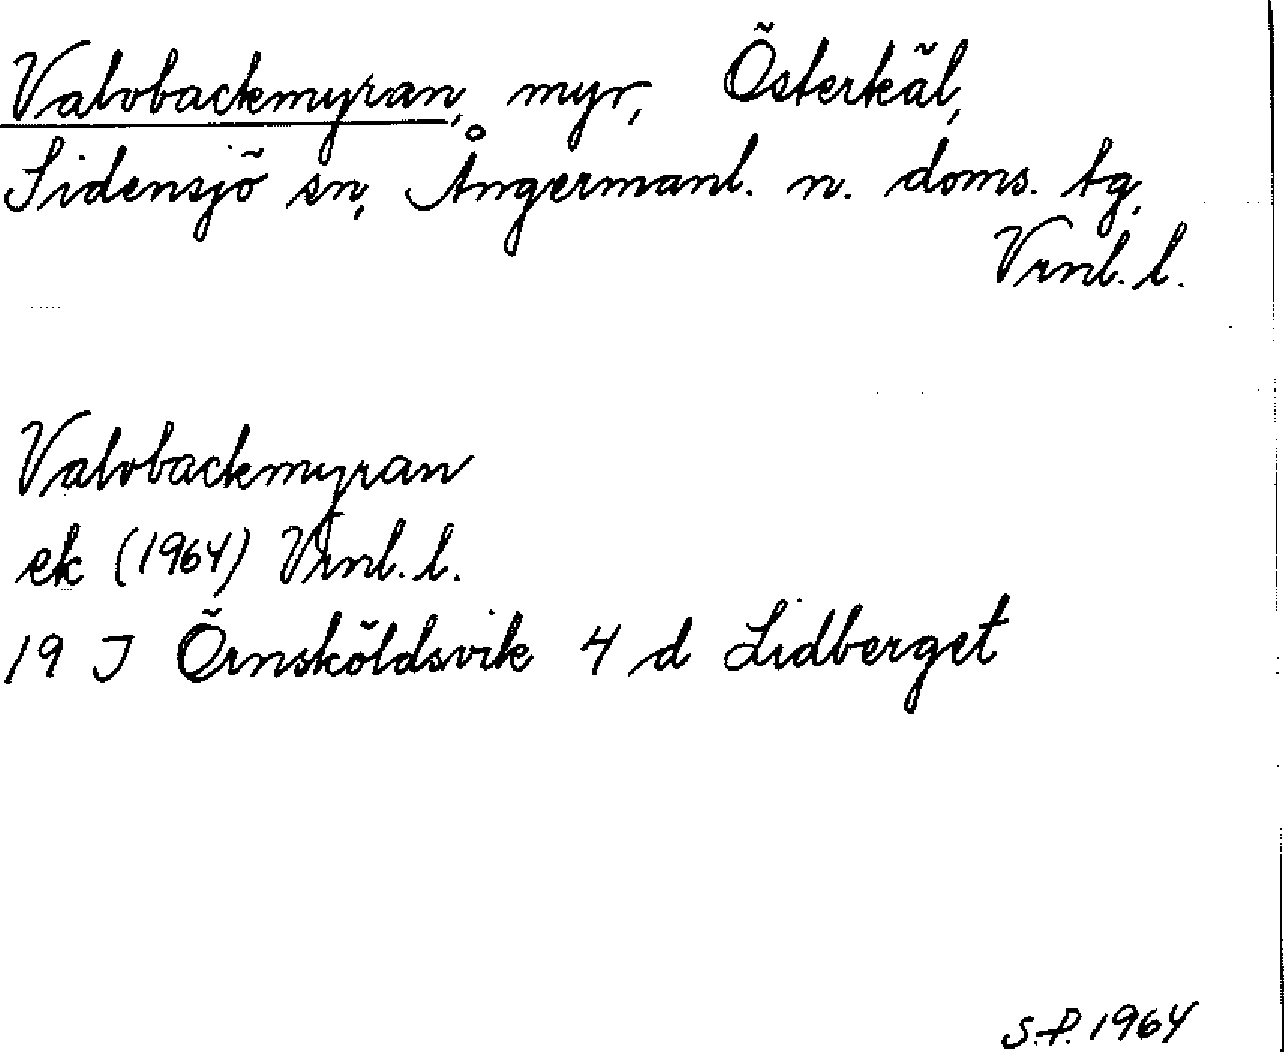 Valvbackmyran, myr, Österkäl,
Sidensjö sn, Ångermanl. n. doms. tg,
Vrnl. l.
Valvbackmyran
ek (1964) Vrnl. l.
19 J Örnsköldsvik 4 d Lidberget
S.P. 1964